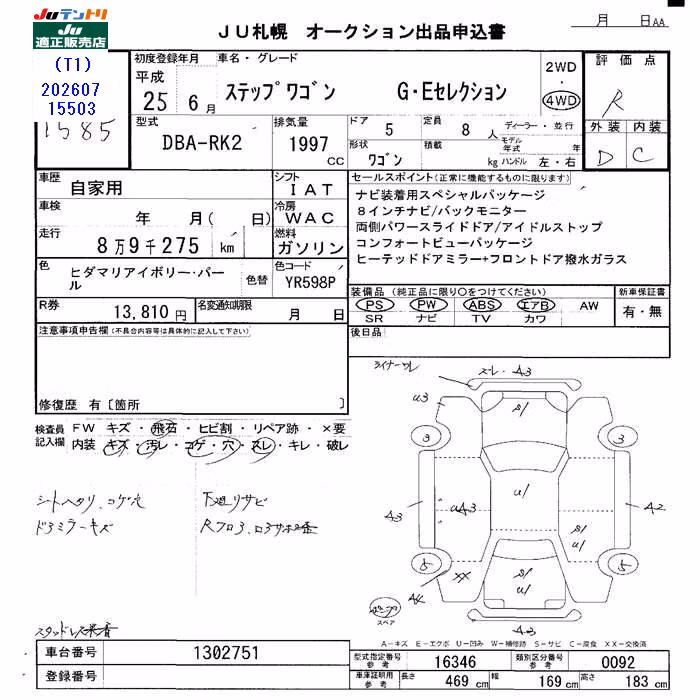 JUテントリ
JU
適正販売店
(T1)
202607
15503
1585
JU札幌 オークション出品申込書
月 日AA
初度登録年月
平成
25 6月
車名・グレード
ステップワゴン G・Eセレクション
2WD
・
4WD
評価点
R
外装 内装
D C
型式
DBA-RK2
排気量
1997
CC
ドア 5
定員 8 人
ディーラー・並行
形状 ワゴン
積載 kg
モデル年式 年
ハンドル 左・右
車歴
自家用
シフト
IAT
車検
年 月( 日)
冷房
WAC
走行
8万9千275 km
燃料
ガソリン
色
ヒダマリアイボリー・パール
色替
色コード
YR598P
R券
13,810円
名変通知期限
月 日
セールスポイント(正常に機能するものに限ります)
ナビ装着用スペシャルパッケージ
8インチナビ/バックモニター
両側パワースライドドア/アイドルストップ
コンフォートビューパッケージ
ヒーテッドドアミラー+フロントドア撥水ガラス
装備品(純正品に限り○をつけてください)
PS PW ABS エアB AW
SR ナビ TV カワ
新車保証書
有・無
後日品
注意事項申告欄(不具合内容等は具体的に記入して下さい)
修復歴 有〔箇所 〕
検査員記入欄
FW キズ・飛石・ヒビ割・リペア跡・×要
内装 キズ・汚レ・コゲ・穴・スレ・キレ・破レ
シートヘタリ、コゲ穴
ドアミラーキズ
下廻りサビ
スレ・A3
u3
s/
3
3
u/
A3
uA3
A2
s/
u/
5
5
A4
XX
s/
u/
A3
スペア
A-キズ E-エクボ U-凹み W-補修跡 S-サビ C-腐食 XX-交換済
車台番号
1302751
登録番号
型式指定番号
参考
16346
類別区分番号
参考
0092
車庫証明用
参考
長さ 469 cm
幅 169 cm
高さ 183 cm